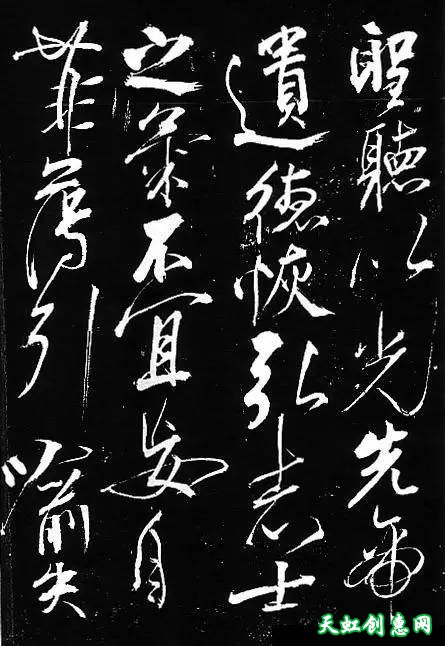 聖聽以光先帝
遺德恢弘志士
之氣不宜妄自
菲薄引喻失
天虹创惠网